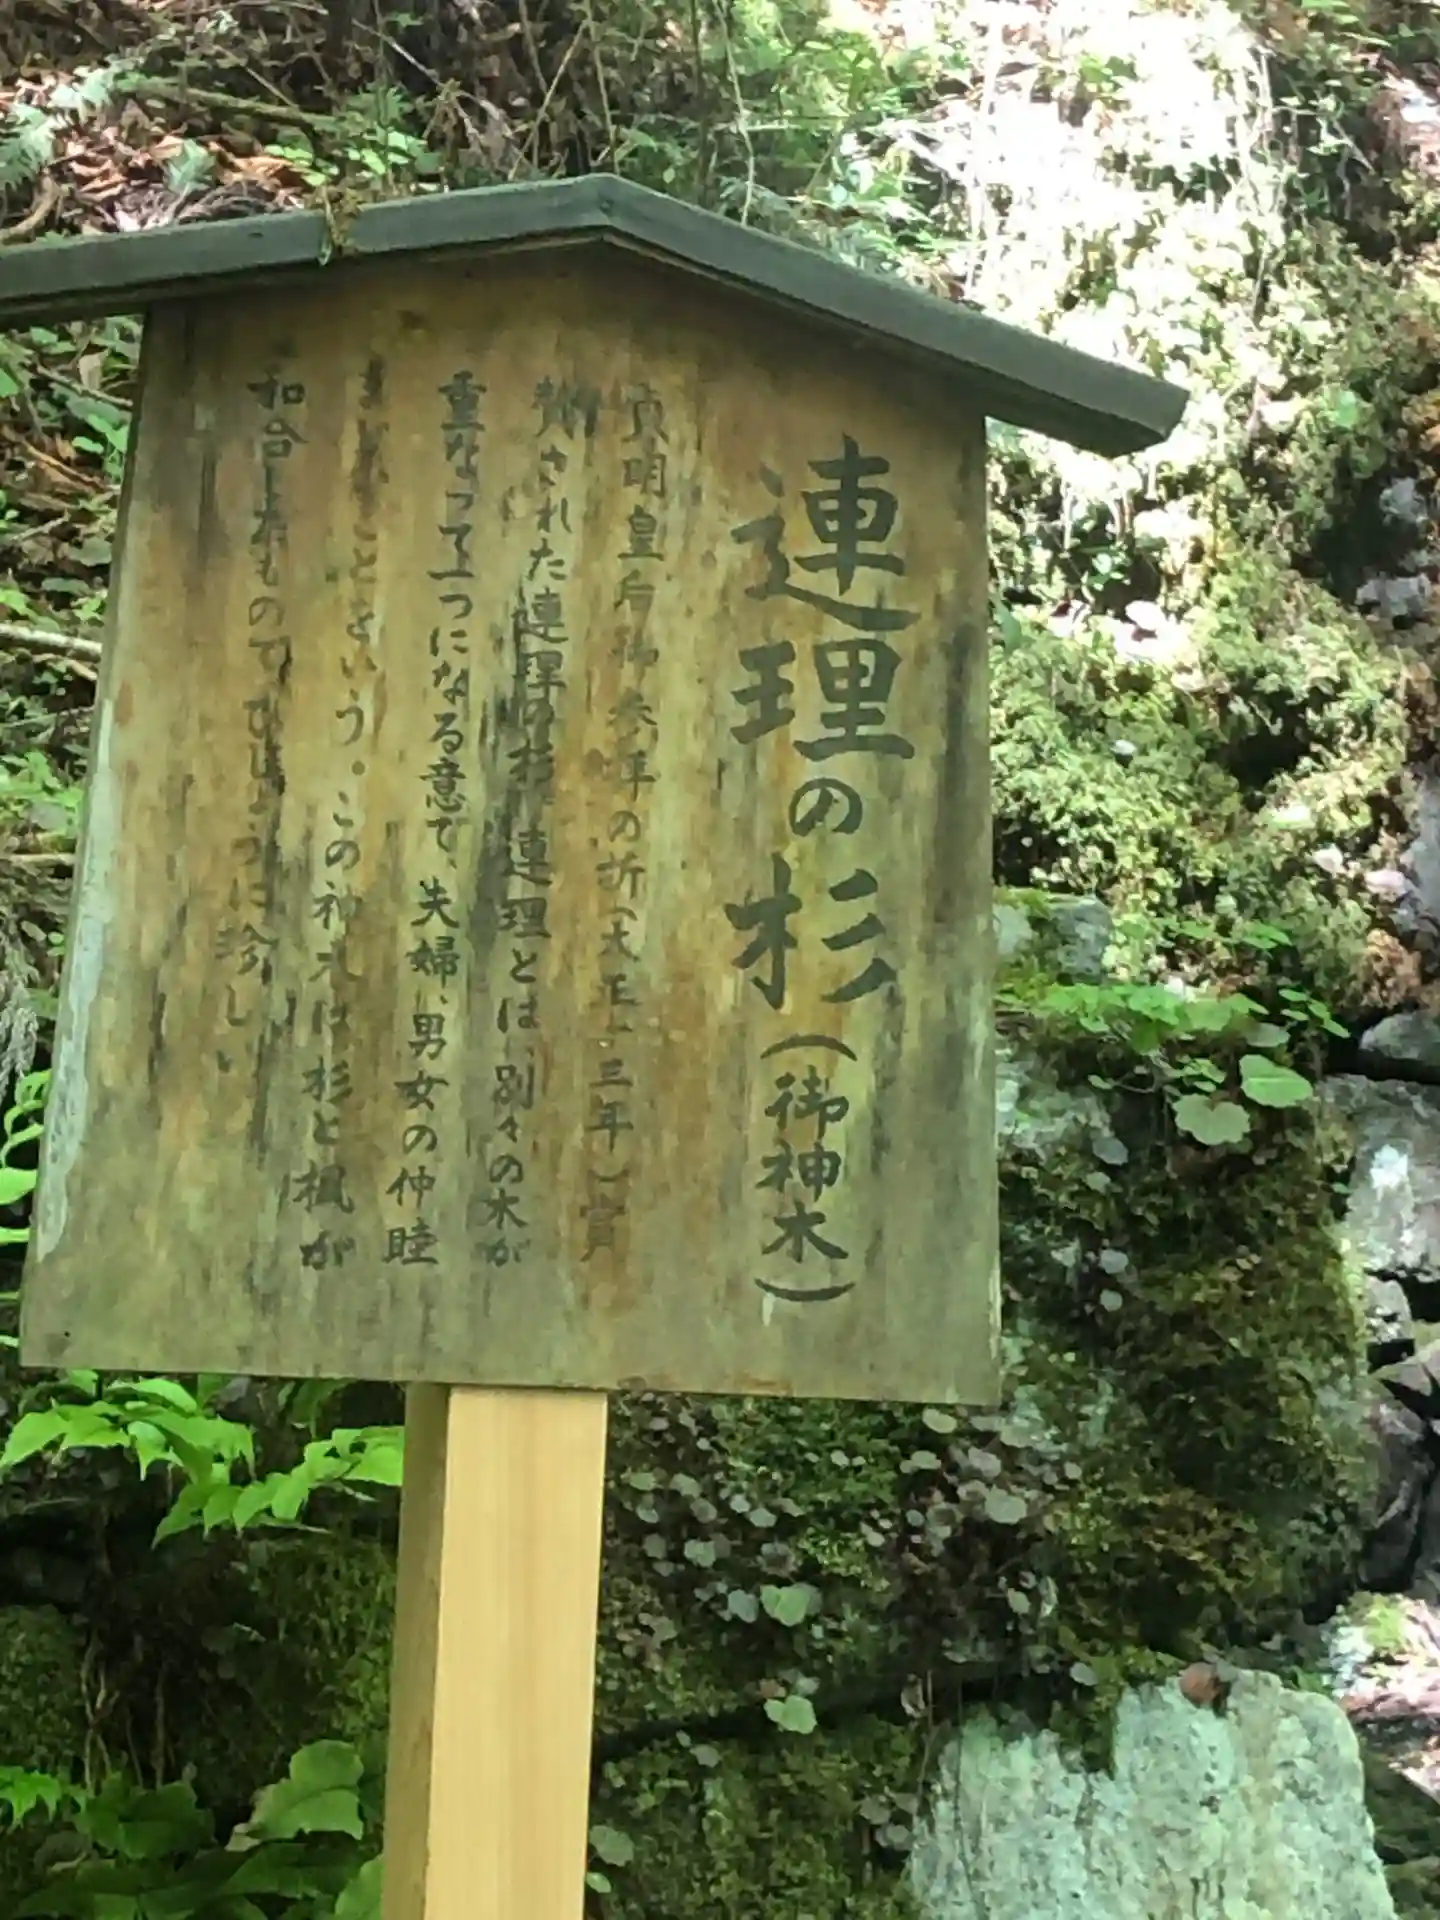 連理の杉（御神木）
貞明皇后御参拝の折（大正十三年）賞
賛された連理の杉。連理とは別々の木が
重なって一つになる意で、夫婦、男女の仲睦
まじいことをいう。この神木は杉と楓が
和合したものでひじょうに珍しい